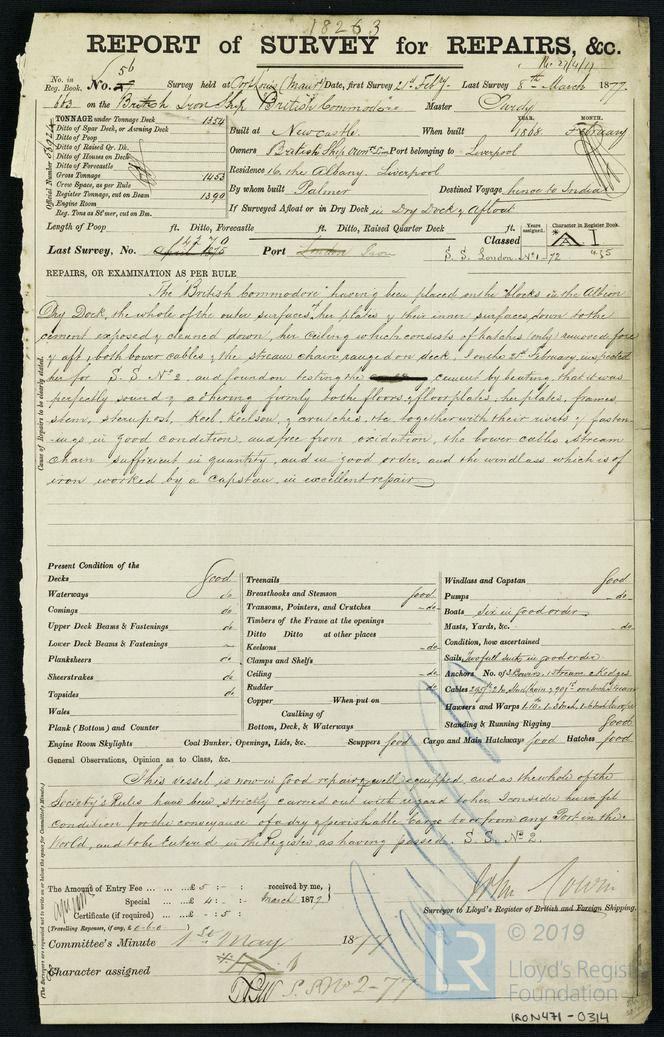 18263
REPORT of SURVEY for REPAIRS, &c.
No. in Reg. Book. No. 56 Survey held at Date, first Survey 21st Feby. Last Survey 8th March 1877.
663 on the British Iron Ship British Commodore Master Purdy
TONNAGE under Tonnage Deck 1354
Ditto of Spar Deck, or Awning Deck
Ditto of Poop
Ditto of Raised Qr. Dk.
Ditto of Houses on Deck
Ditto of Forecastle
Gross Tonnage 1453
Crew Space, as per Rule
Register Tonnage, cut on Beam 1390
Engine Room
Reg. Tons as St'mer, cut on Bm.
Official Number
Built at Newcastle When built YEAR. 1868 MONTH. February
Owners British Ship Own Co. Lim Port belonging to Liverpool
Residence 16, the Albany, Liverpool
By whom built Palmer Destined Voyage hence to India
If Surveyed Afloat or in Dry Dock in Dry Dock & Afloat
Length of Poop ft. Ditto, Forecastle ft. Ditto, Raised Quarter Deck ft.
Years assigned. Character in Register Book.
Classed A 1
Last Survey, No. Port London Iron S. S. London No 1-72
REPAIRS, OR EXAMINATION AS PER RULE
Cause of Repairs to be clearly stated.
The "British Commodore" having been placed on the blocks in the Albion
Dry Dock, the whole of the outer surfaces, her plates & their inner surfaces, down to the
cement exposed & cleaned down, her ceiling which consists of hatches (only) removed fore
& aft, both bower cables & the stream chain ranged on deck, I on the 21st February, inspected
her for S. S. No 2, and found on testing the cement by beating, that it was
perfectly sound & adhering firmly to the floors & floor plates, her plates, frames
stem, sternpost, Keel Keelson, & crutches, &c together with their rivets & fasten-
-ings, in good condition, and free from oxidation, the bower cables & stream
chain sufficient in quantity, and in good order, and the windlass which is of
iron worked by a capstan, in excellent repair
Present Condition of the
Decks good
Waterways do
Comings do
Upper Deck Beams & Fastenings do
Lower Deck Beams & Fastenings
Planksheers do
Sheerstrakes do
Topsides do
Wales
Plank (Bottom) and Counter
Engine Room Skylights Coal Bunker, Openings, Lids, &c. Scuppers good Cargo and Main Hatchways good Hatches good
Treenails
Breasthooks and Stemson good
Transoms, Pointers, and Crutches do
Timbers of the Frame at the openings
Ditto Ditto at other places
Keelsons do
Clamps and Shelfs
Ceiling do
Rudder do
Copper When put on
Caulking of
Bottom, Deck, & Waterways
Windlass and Capstan good
Pumps do
Boats Six in good order
Masts, Yards, &c. do
Condition, how ascertained
Sails, Two full suits in good order
Anchors No. of 3 Bowers, 1 Stream 2 Kedges
Cables
Hawsers and Warps
Standing & Running Rigging Good
General Observations, Opinion as to Class, &c.
This Vessel is now in good repair & well equipped, and as the whole of the
Society's Rules have been strictly carried out with regard to her, I consider her in fit
condition for the conveyance of a dry & perishable Cargo to or from any Port in the
World, and to be Entered in the Register as having passed S. S. No 2.
(The Surveyors are requested not to write on or below the space for Committee's Minute.)
The Amount of Entry Fee ... ... £ 5 : - : received by me,
Special ... £ 4 : - : March 1877
Certificate (if required) ... £ - : 5 :
(Travelling Expenses, if any, £ 0-6-0 )
John Cowin
Surveyor to Lloyd's Register of British and Foreign Shipping.
Committee's Minute 1st May 1877
Character assigned
S. S No 2-77
© 2019
LR
Lloyd's Regist
Foundation
IRON471-0314